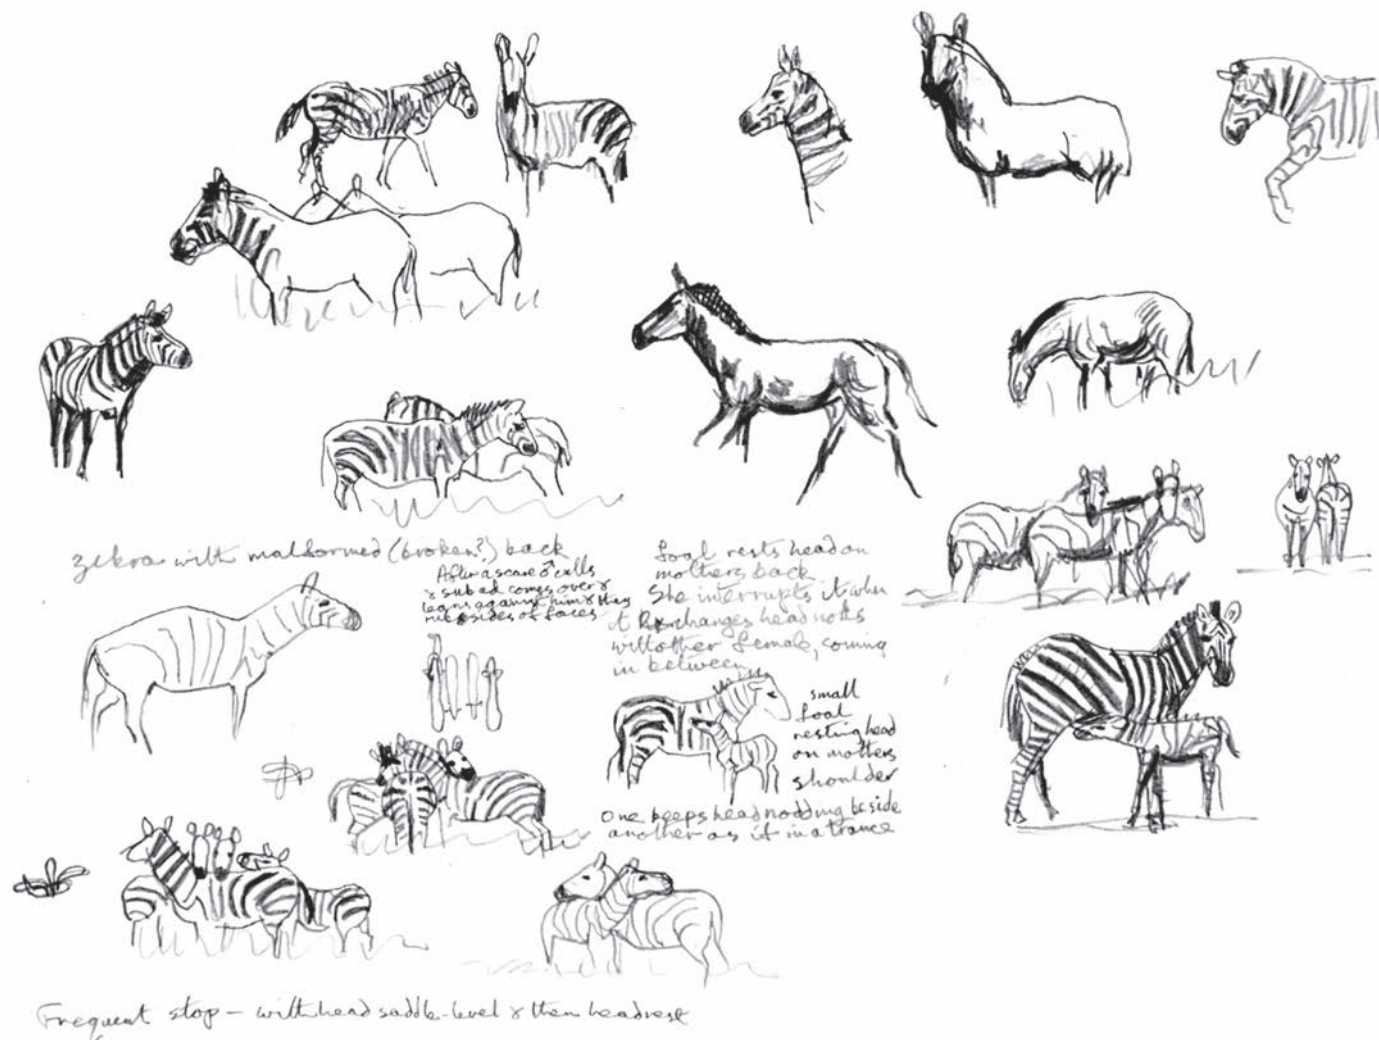 zebra with malformed (broken?) back
After a scare ♂ calls
& subad comes over &
leans against him & they
rub sides of faces
foal rests head on
mothers back
She interrupts it when
it changes head nods
with other female, coming
in between
small
foal
resting head
on mothers
shoulder
One keeps head nodding beside
another as if in a trance
Frequent stop – with head saddle-level & then headrest